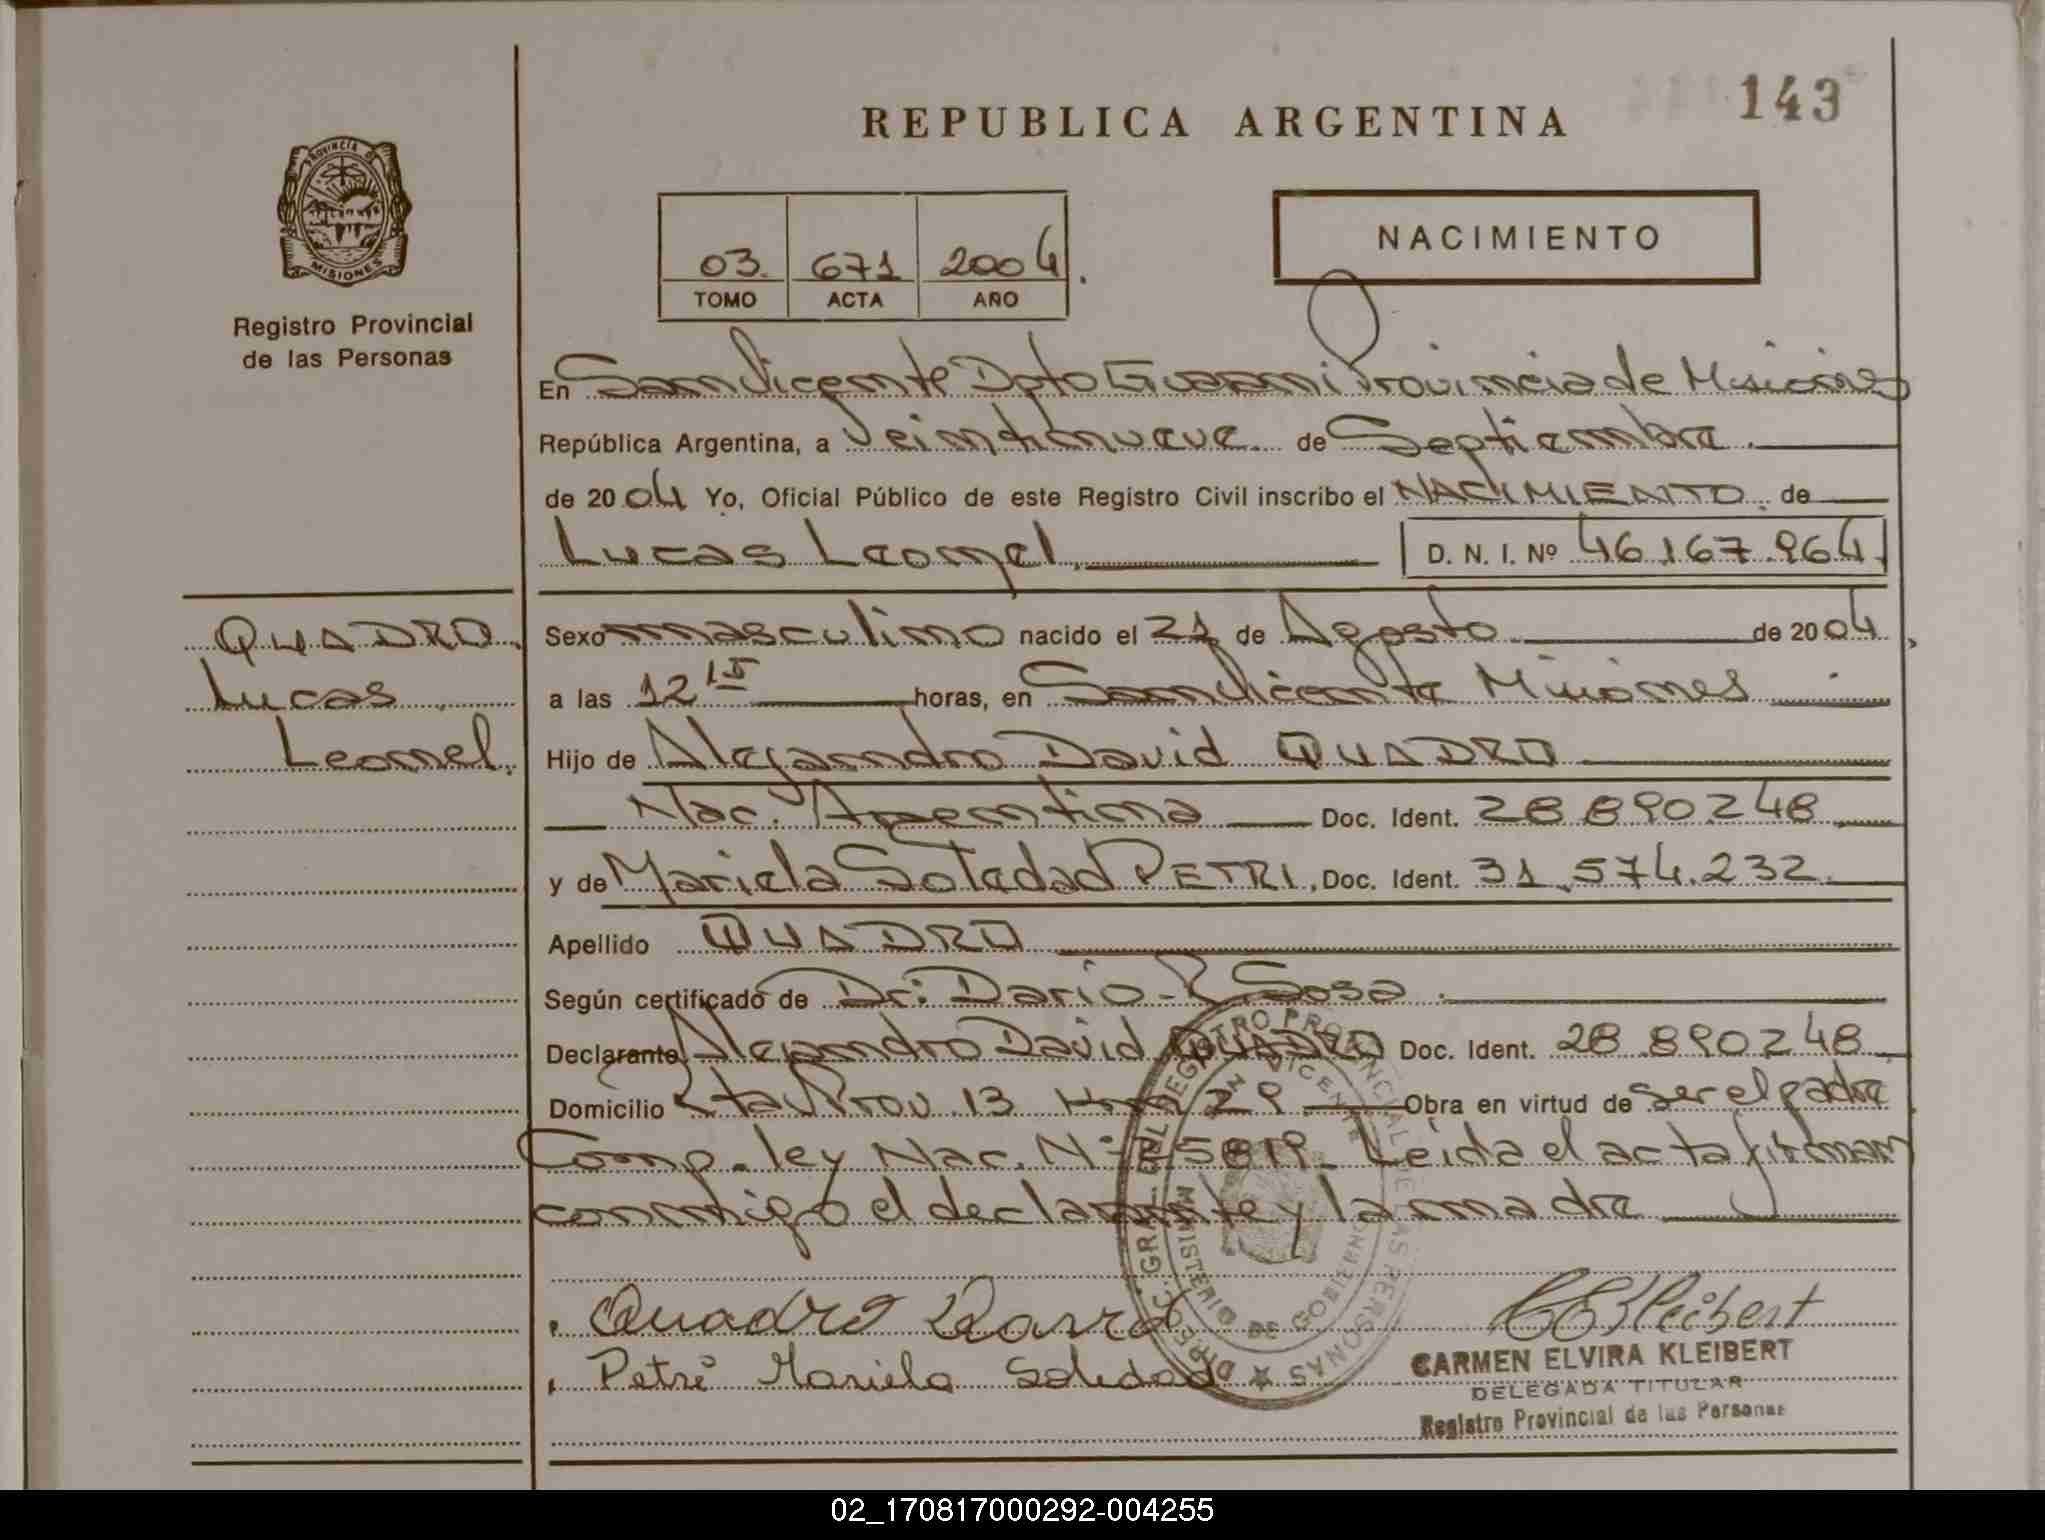 143
REPUBLICA ARGENTINA
PROVINCIA DE
MISIONES
Registro Provincial
de las Personas
03 671 2004
TOMO ACTA AÑO
NACIMIENTO
En San Vicente Dpto Guarani Provincia de Misiones
República Argentina, a Veintinueve de Septiembre
de 2004 Yo, Oficial Público de este Registro Civil inscribo el NACIMIENTO de
Lucas Leonel D. N. I. Nº 46.167.964
QUADRO
Lucas
Leonel.
Sexo masculino nacido el 21 de Agosto de 2004
a las 12 15 horas, en San Vicente Misiones
Hijo de Alejandro David QUADRO
Nac. Argentina Doc. Ident. 28 890248
y de Mariela Soledad PETRI, Doc. Ident. 31.574.232
Apellido QUADRO
Según certificado de Dr: Dario R Sosa
Declarante Alejandro David QUADRO Doc. Ident. 28 890248
Domicilio Rta Prov 13 Km 29 Obra en virtud de ser el padre
Comp. ley Nac. Nº 25819 Leida el acta firman
conmigo el declarante y la madre
Quadro David
Petri Mariela Soledad
CEKleibert
CARMEN ELVIRA KLEIBERT
DELEGADA TITULAR
Registro Provincial de las Personas
DIREC. GRAL. DEL REGISTRO PROVINCIAL DE LAS PERSONAS
SAN VICENTE
MINISTERIO DE GOBIERNO
02_170817000292-004255